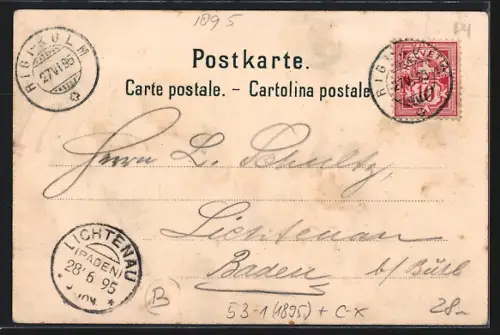 1895
RIGI-KULM
27.VI.95
Postkarte.
Carte postale. - Cartolina postale
HELVETIA
10
Herrn L. Schultz
Lichtenau
Baden b/ Bühl
LICHTENAU
(BADEN)
28 6 95
B
53-1 (1895) + C-X
28-